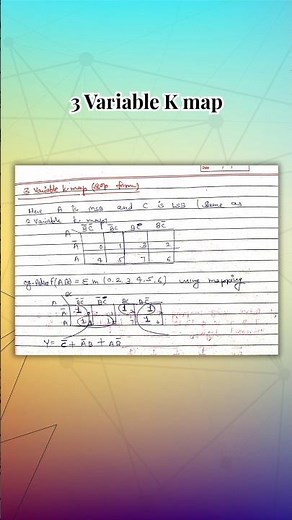 3 Variable K map
3 Variable k-map (SOP form)
Here A is MSB and C is LSB (Same as
2 variable k maps
A B̅C̅ B̅C BC̅ BC
A̅ 0 1 3 2
A 4 5 7 6
eg. f(A,B) = Σm (0,2,3,4,5,6) using mapping
A B̅C̅ B̅C BC BC̅
A̅ 1 1 1
A 1 1 1
Y = C̅ + A̅B + AB̅